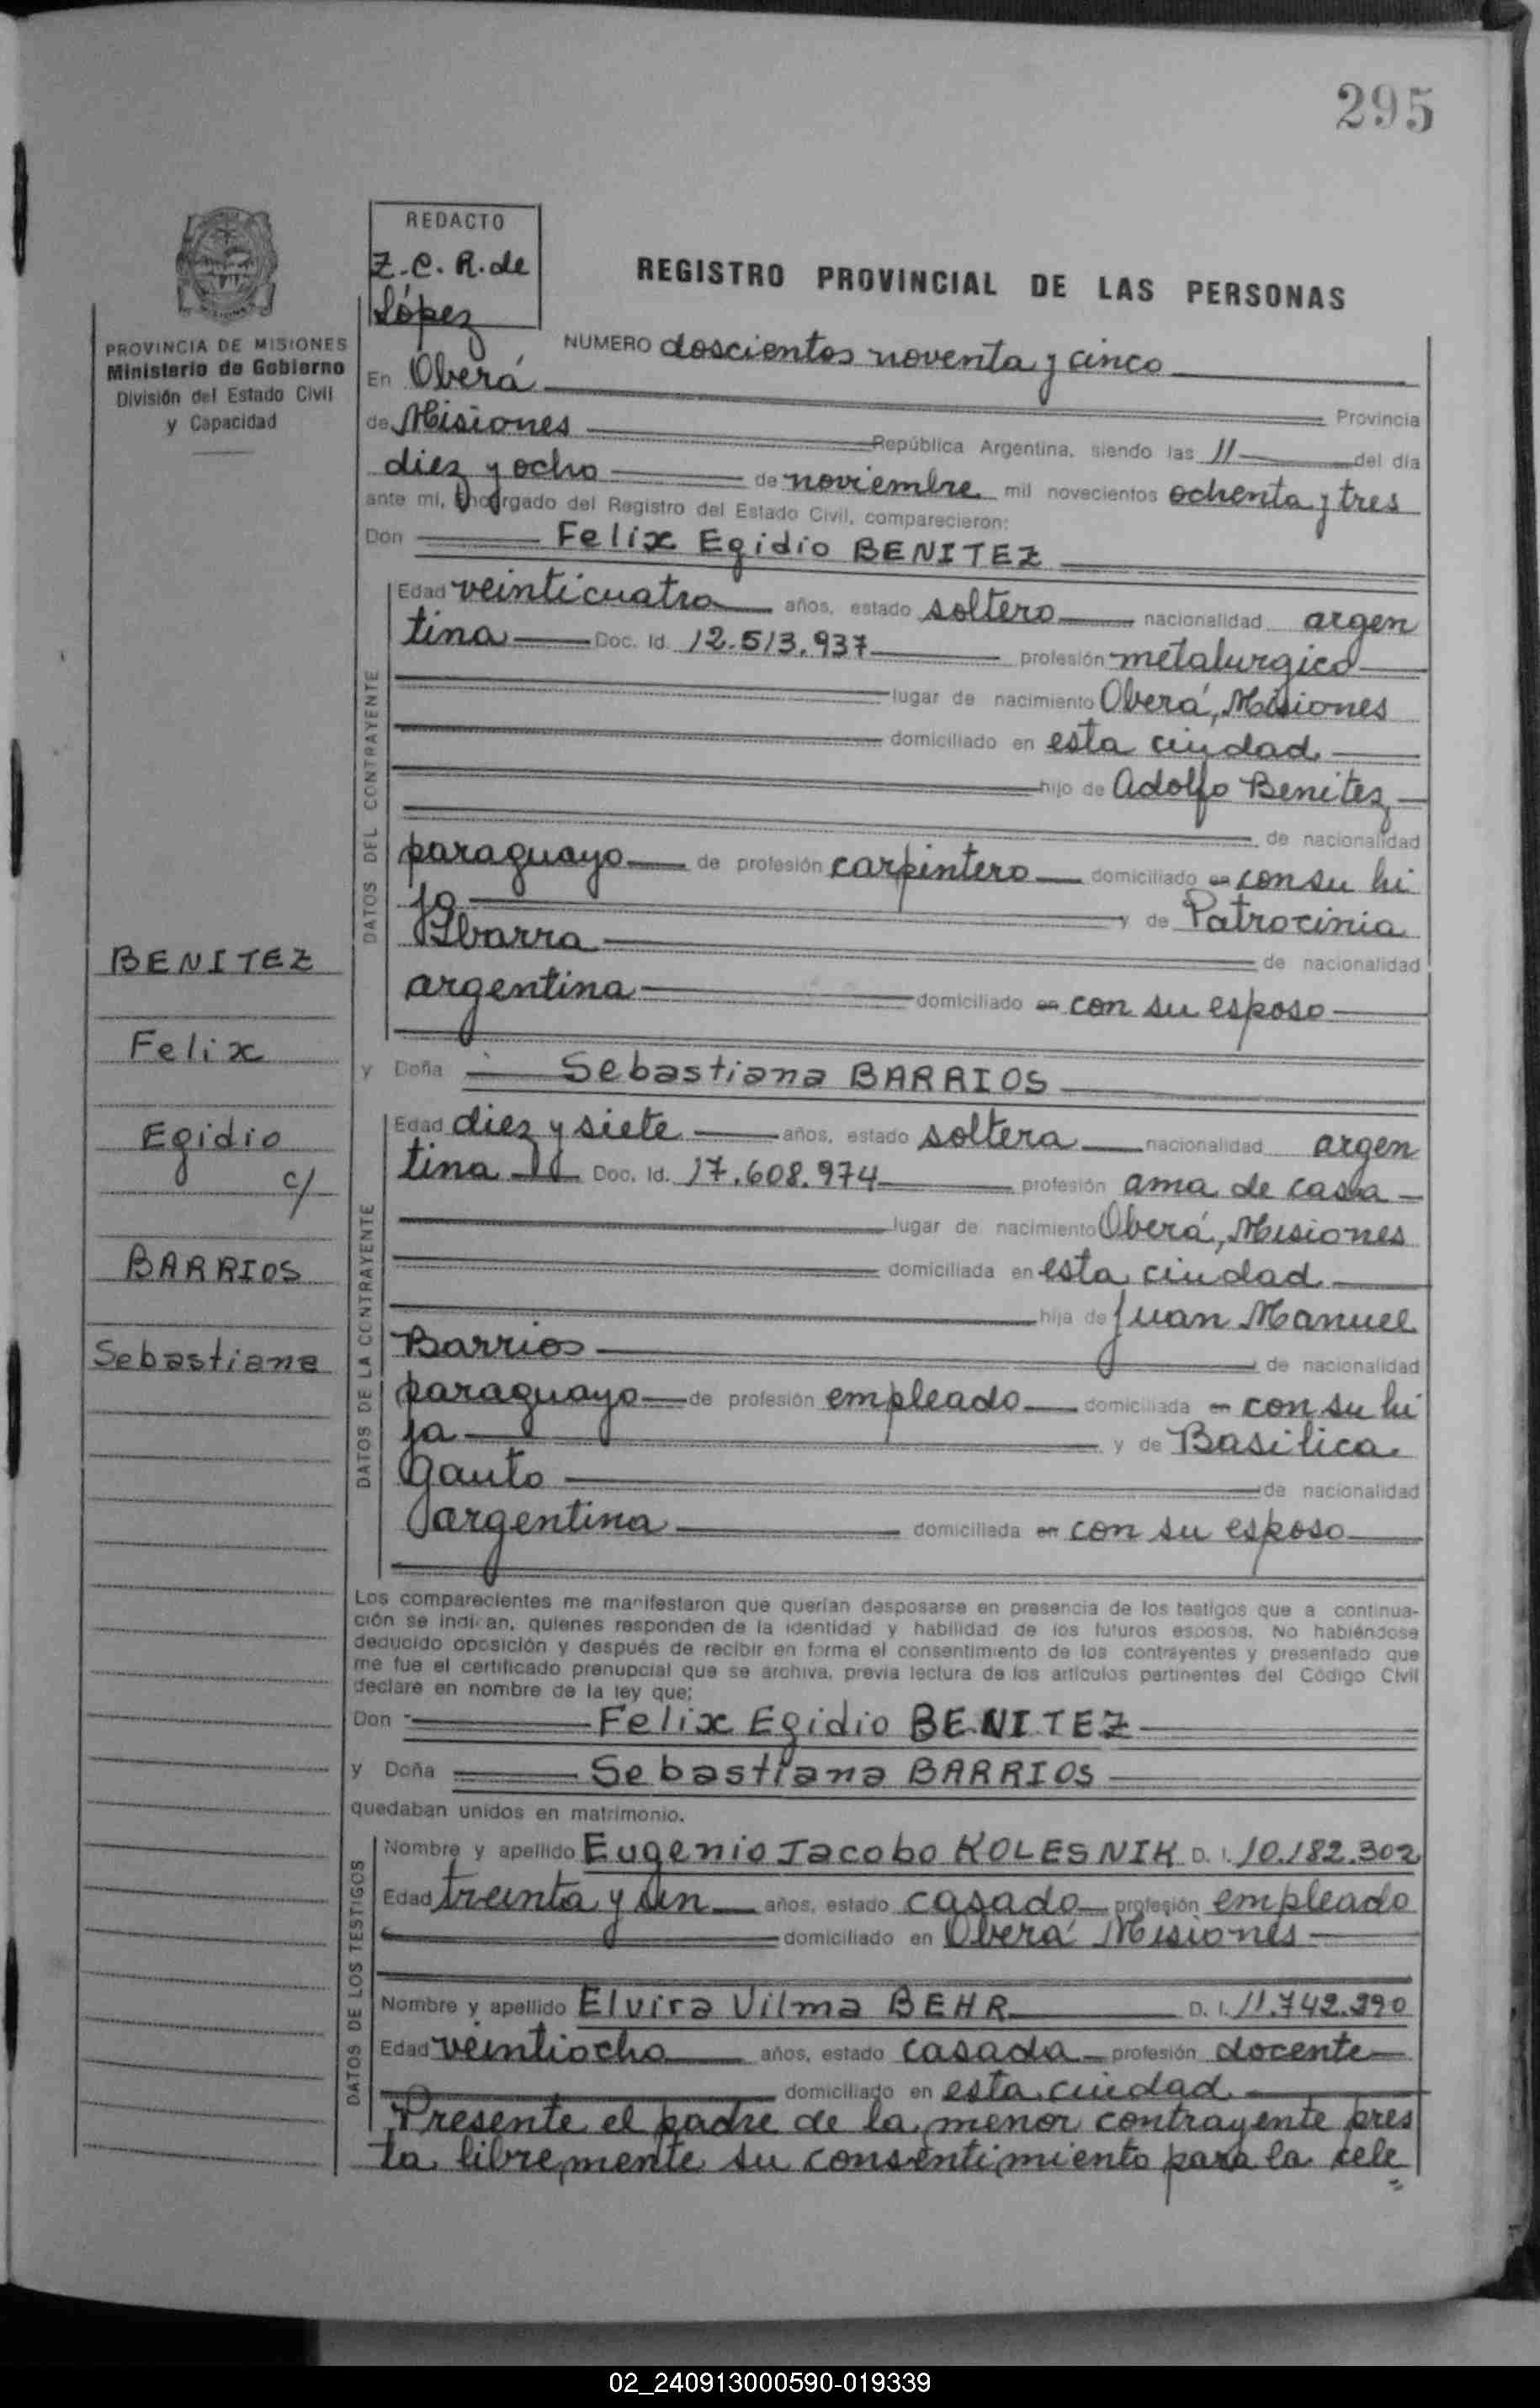 295
REDACTO
Z.C.R. de
López
REGISTRO PROVINCIAL DE LAS PERSONAS
PROVINCIA DE MISIONES
Ministerio de Gobierno
División del Estado Civil
y Capacidad
NUMERO doscientos noventa y cinco
En Oberá Provincia
de Misiones República Argentina, siendo las 11 del día
diez y ocho de noviembre mil novecientos ochenta y tres
ante mí, Encargado del Registro del Estado Civil, comparecieron:
Don Felix Egidio BENITEZ
DATOS DEL CONTRAYENTE
Edad veinticuatro años, estado soltero nacionalidad argen
tina Doc. Id. 12.513.937 profesión metalurgico
lugar de nacimiento Oberá, Misiones
domiciliado en esta ciudad
hijo de Adolfo Benitez
de nacionalidad
paraguayo de profesión carpintero domiciliado en con su hi
jo y de Patrocinia
Ibarra de nacionalidad
argentina domiciliado en con su esposo
y Doña Sebastiana BARRIOS
DATOS DE LA CONTRAYENTE
Edad diez y siete años, estado soltera nacionalidad argen
tina Doc. Id. 17.608.974 profesión ama de casa
lugar de nacimiento Oberá, Misiones
domiciliada en esta ciudad
hija de Juan Manuel
Barrios de nacionalidad
paraguayo de profesión empleado domiciliada en con su hi
ja y de Basilica
Gauto de nacionalidad
argentina domiciliada en con su esposo
BENITEZ
Felix
Egidio
c/
BARRIOS
Sebastiana
Los comparecientes me manifestaron que querían desposarse en presencia de los testigos que a continua-
ción se indican, quienes responden de la identidad y habilidad de los futuros esposos. No habiéndose
deducido oposición y después de recibir en forma el consentimiento de los contrayentes y presentado que
me fue el certificado prenupcial que se archiva, previa lectura de los artículos pertinentes del Código Civil
declare en nombre de la ley que:
Don Felix Egidio BENITEZ
y Doña Sebastiana BARRIOS
quedaban unidos en matrimonio.
DATOS DE LOS TESTIGOS
Nombre y apellido Eugenio Jacobo KOLESNIK D. I. 10.182.302
Edad treinta y un años, estado casado profesión empleado
domiciliado en Oberá Misiones
Nombre y apellido Elvira Vilma BEHR D. I. 11.742.290
Edad veintiocho años, estado casada profesión docente
domiciliado en esta ciudad
Presente el padre de la menor contrayente pres
ta libremente su consentimiento para la cele
02_240913000590-019339